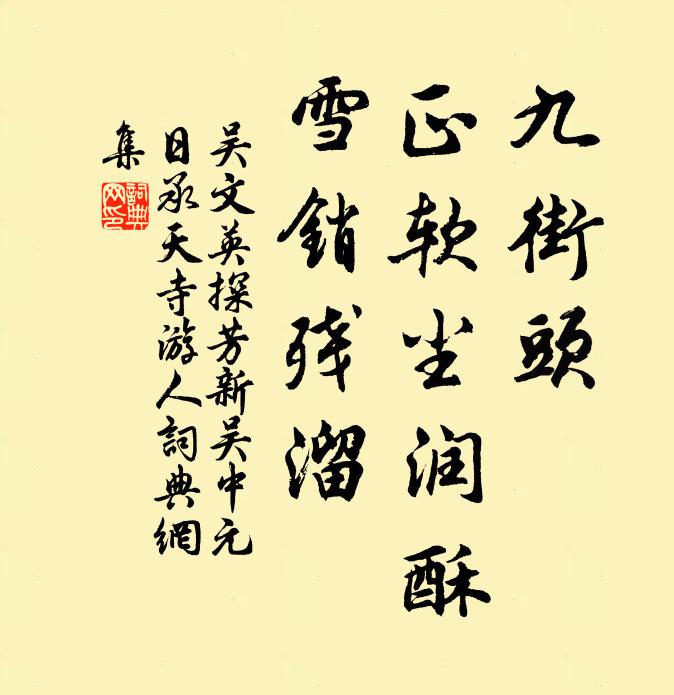 九街頭
正软尘润酥
雪銷残溜
吴文英探芳新吴中元
日承天寺游人詞典網
集
詞典网印